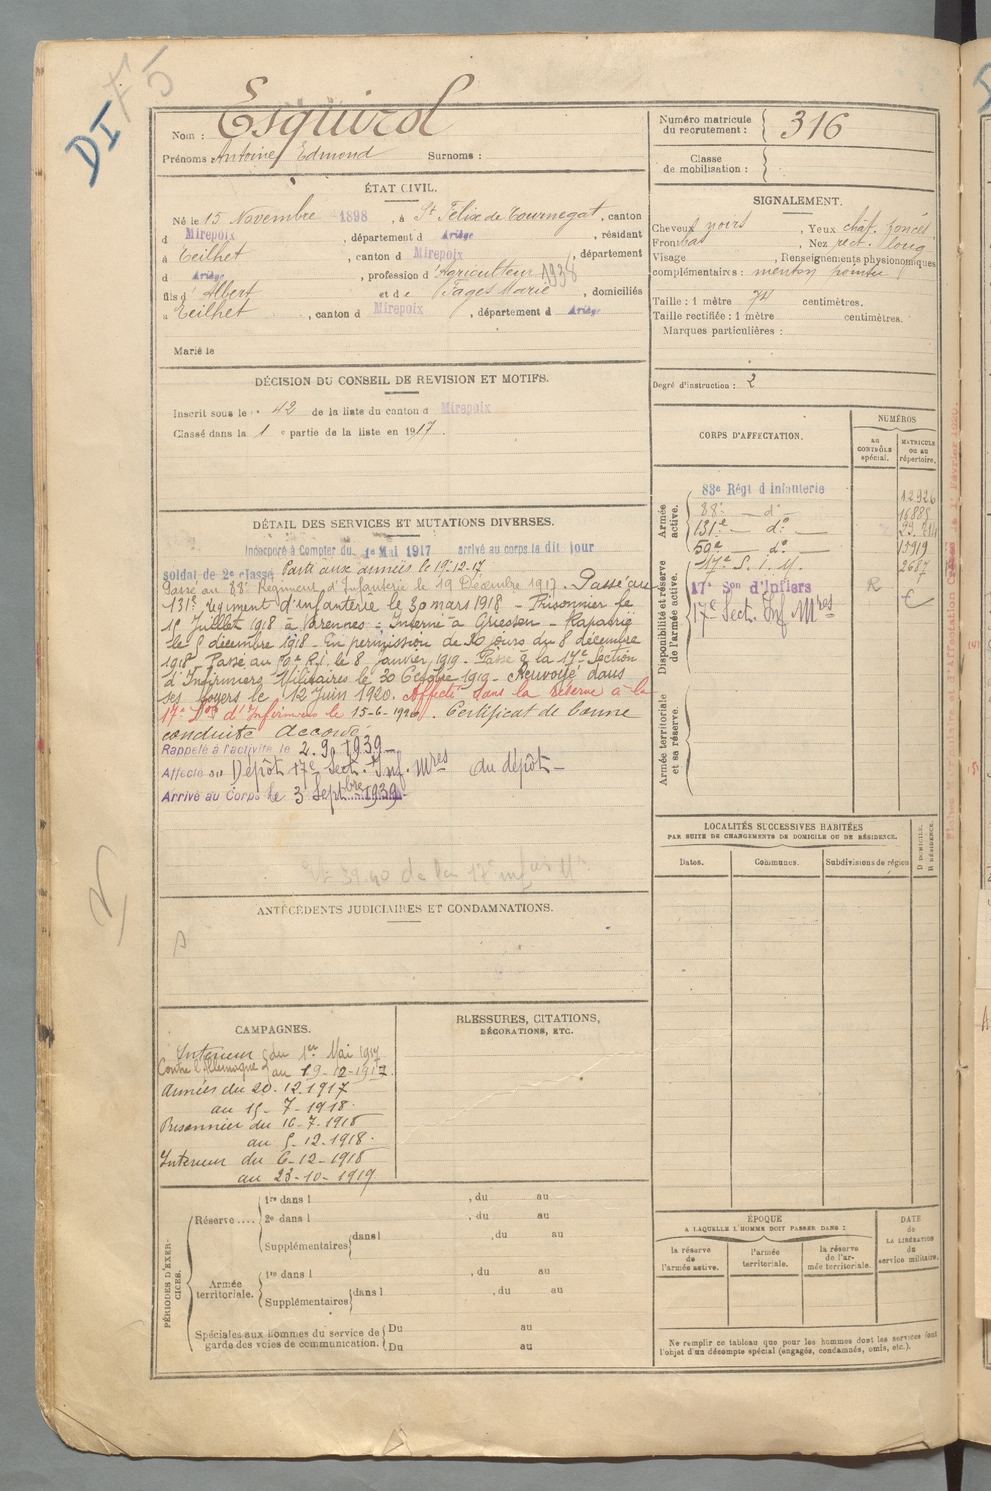 DI
75
Nom : Esquirol
Prénoms : Antoine Edmond Surnoms :
Numéro matricule du recrutement : 316
Classe de mobilisation :
ÉTAT CIVIL.
Né le 15 Novembre 1898, à St Félix de Tournegat, canton
d Mirepoix, département d Ariège, résidant
à Teilhet, canton d Mirepoix, département
d Ariège, profession d Agriculteur 1938
fils d' Albert et de Pages Marie, domiciliés
à Teilhet, canton d Mirepoix, département d Ariège
Marié le
SIGNALEMENT.
Cheveux noirs, Yeux chât. foncés
Front bas, Nez rect. long
Visage , Renseignements physionomiques
complémentaires : menton pointu
Taille : 1 mètre 74 centimètres.
Taille rectifiée : 1 mètre centimètres.
Marques particulières :
Degré d'instruction : 2
DÉCISION DU CONSEIL DE REVISION ET MOTIFS.
Inscrit sous le n° 42 de la liste du canton d Mirepoix
Classé dans la 1 e partie de la liste en 1917.
DÉTAIL DES SERVICES ET MUTATIONS DIVERSES.
Incorporé à Compter du 1er Mai 1917 arrivé au corps le dit jour
soldat de 2e classe Parti aux armées le 19.12.17
Passé au 88e Régiment d'Infanterie le 19 Décembre 1917. Passé au
131e Régiment d'infanterie le 30 mars 1918 – Prisonnier le
15 Juillet 1918 à Varennes – Interné à Giessen – Rapatrié
le 5 décembre 1918 – En permission de 20 jours du 8 décembre
1918 Passé au 50e R.I. le 8 janvier 1919 – Passé à la 17e Section
d'Infirmiers Militaires le 30 Octobre 1919 – Renvoyé dans
ses foyers le 12 Juin 1920. Affecté dans la réserve à la
17e Son d'Infirmiers le 15-6-1920. Certificat de bonne
conduite Accordé
Rappelé à l'activité le 2.9.1939
Affecté au Dépôt 17e Sect. Inf. Mres du dépôt
Arrivé au Corps le 3 Septbre 1939
39.40 de la 17e
ANTÉCÉDENTS JUDICIAIRES ET CONDAMNATIONS.
CORPS D'AFFECTATION.
NUMÉROS
AU CONTRÔLE spécial.
MATRICULE OU AU répertoire.
Armée active.
83e Régt d'infanterie 12926
88e d° 16885
131e d°
50e d° 15919
17e S. I. M. 2687
Disponibilité et réserve de l'armée active.
17e Son d'Infiers R
17e Sect. Inf Mres
Armée territoriale et sa réserve.
LOCALITÉS SUCCESSIVES HABITÉES
PAR SUITE DE CHANGEMENTS DE DOMICILE OU DE RÉSIDENCE.
Dates.
Communes.
Subdivisions de région
D DOMICILE. R RÉSIDENCE.
CAMPAGNES.
Intérieur du 1er Mai 1917
Contre l'Allemagne au 19-12-1917.
Armées du 20.12.1917
au 15-7-1918
Prisonnier du 16-7-1918
au 5-12-1918.
Intérieur du 6-12-1918
au 23-10-1919
BLESSURES, CITATIONS,
DÉCORATIONS, ETC.
PÉRIODES D'EXERCICES.
Réserve ....
1re dans l , du au
2e dans l , du au
Supplémentaires dans l , du au
Armée territoriale.
1re dans l , du au
Supplémentaires dans l , du au
Spéciales aux hommes du service de
garde des voies de communication.
Du au
Du au
ÉPOQUE
A LAQUELLE L'HOMME DOIT PASSER DANS :
la réserve de l'armée active.
l'armée territoriale.
la réserve de l'armée territoriale.
DATE de LA LIBÉRATION du service militaire.
Ne remplir ce tableau que pour les hommes dont les services font
l'objet d'un décompte spécial (engagés, condamnés, omis, etc.).